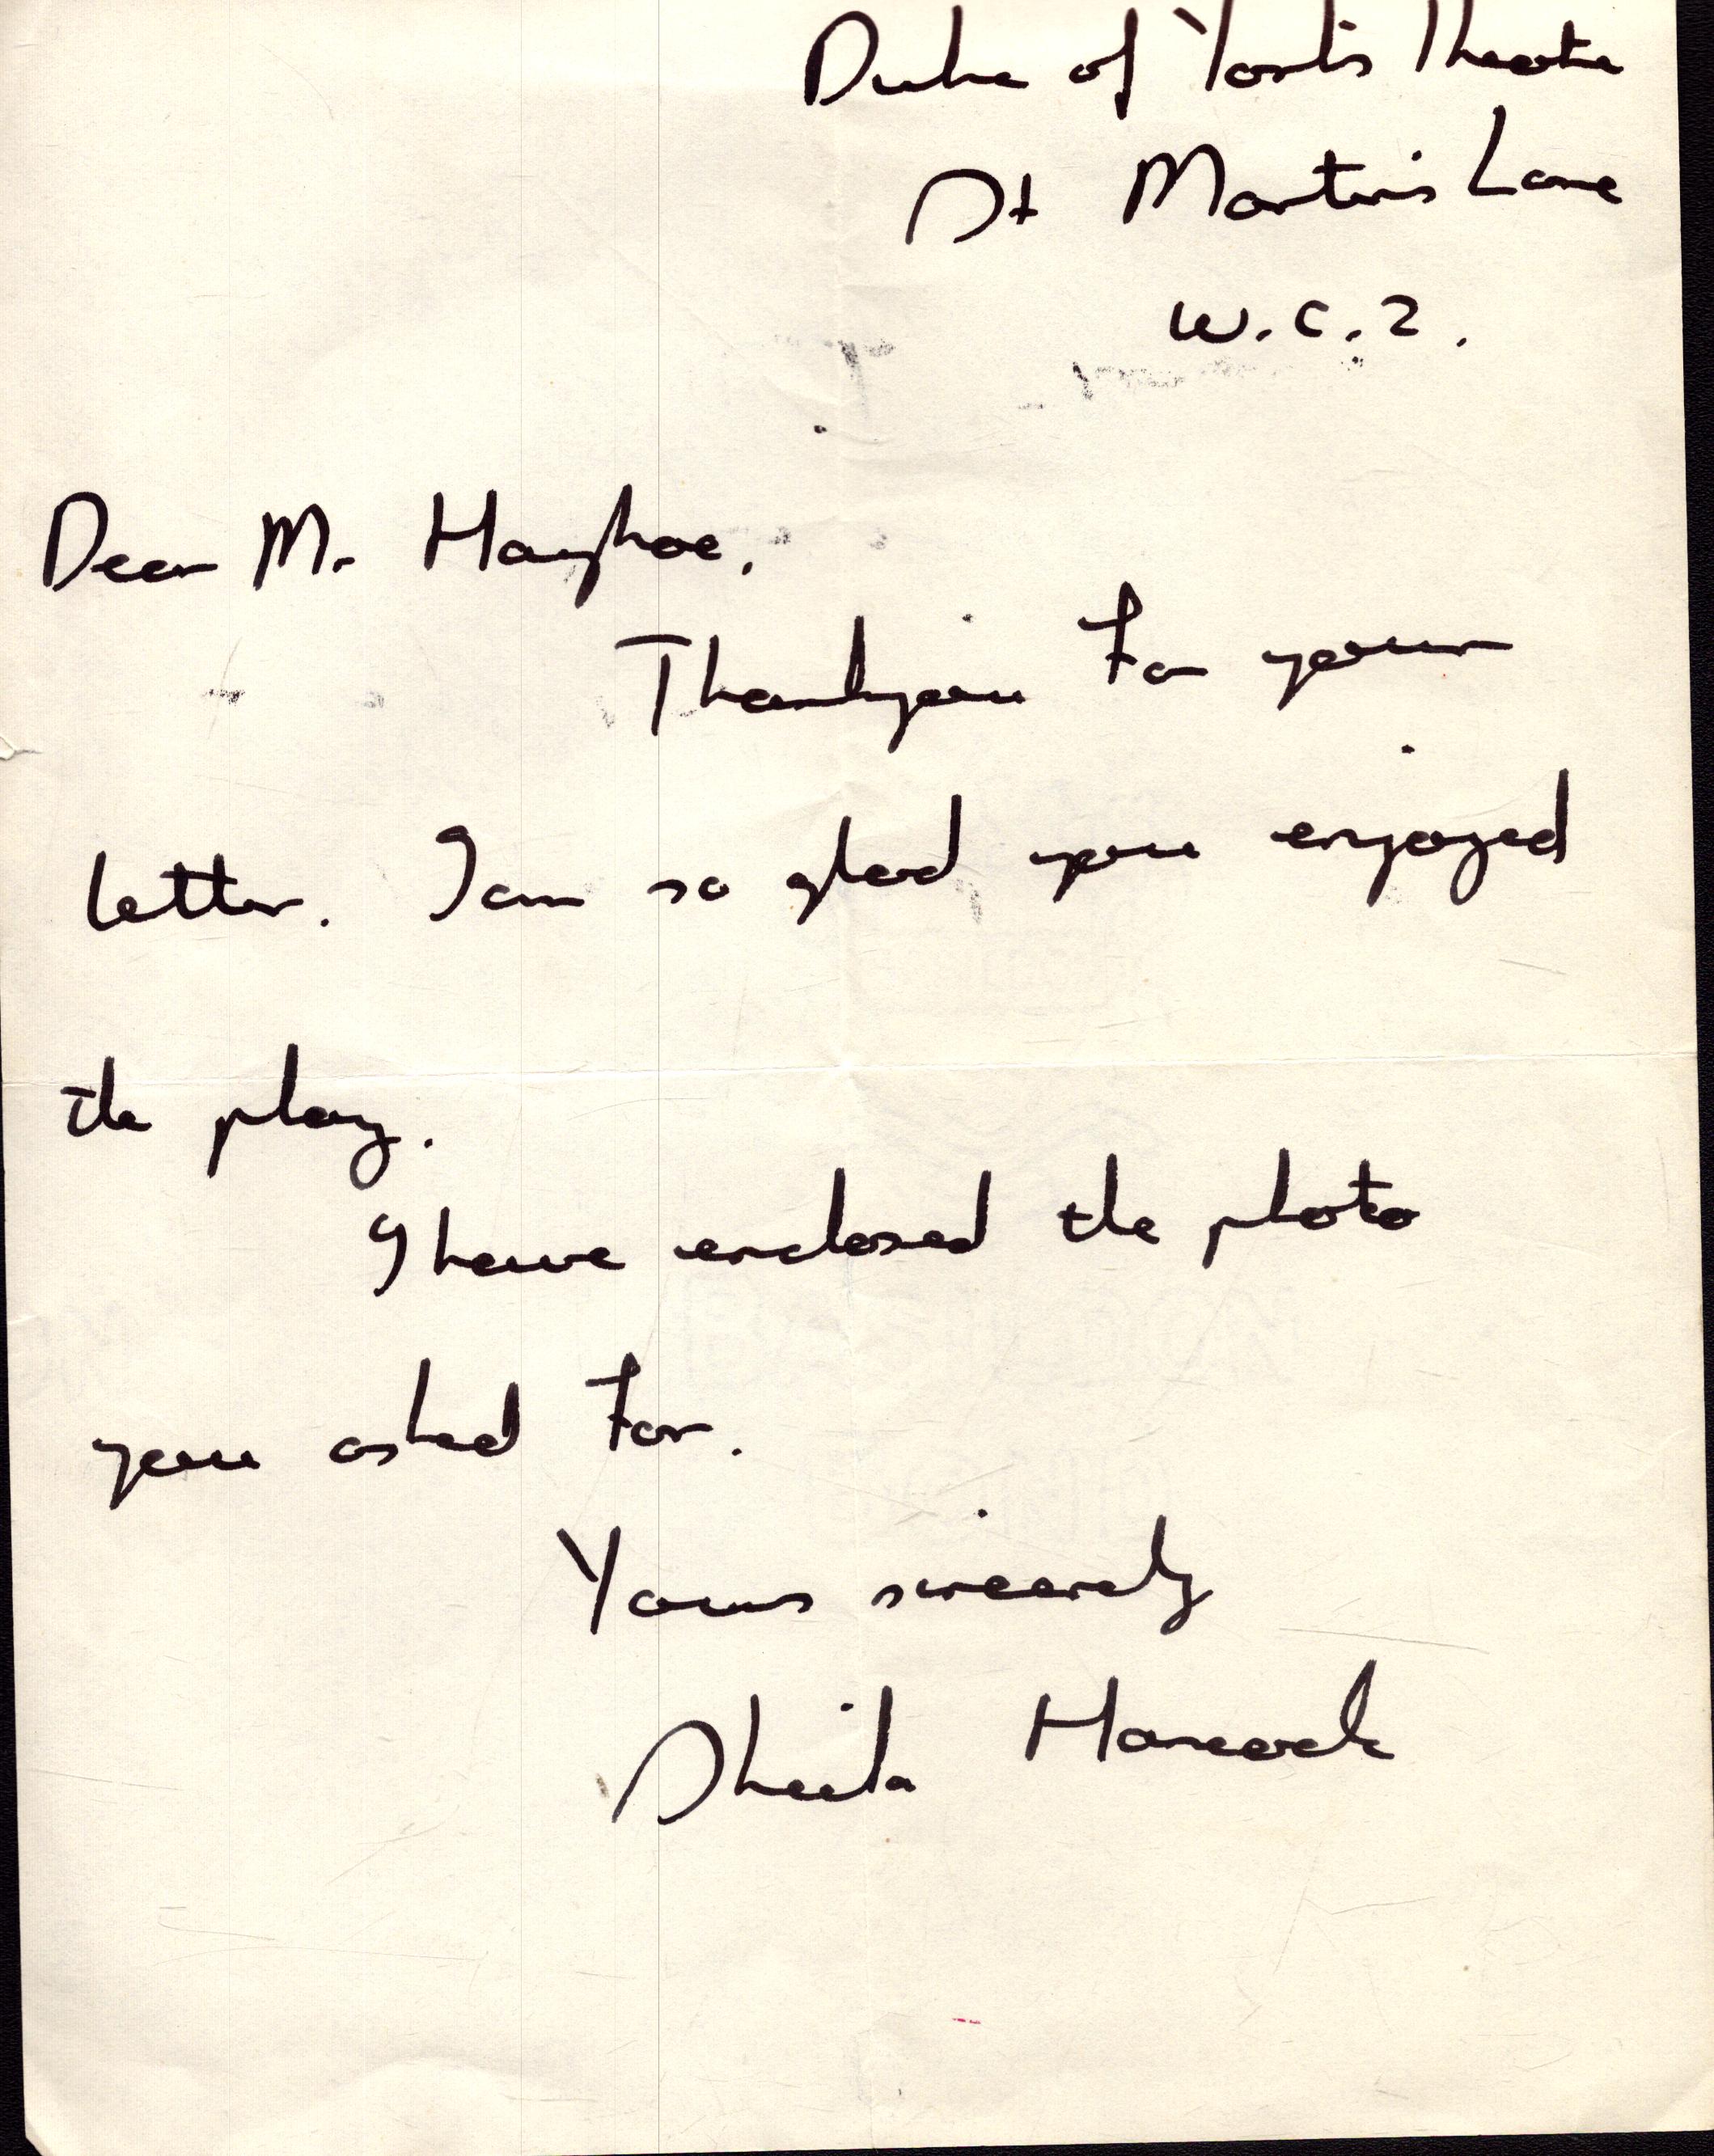 Duke of York's Theatre
St Martin's Lane
W.C.2.
Dear Mr. Hayhoe,
Thankyou for your
letter. I am so glad you enjoyed
the play.
I have enclosed the photo
you asked for.
Yours sincerely
Sheila Hancock